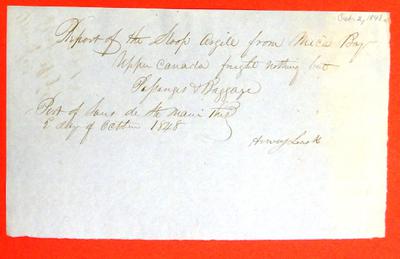 Oct. 2, 1848
Report of the Sloop Argile from Mica Bay
Upper Canada fright nothing but
Pasenges & Baggage
Port of Saus de St Maui this
2 day of October 1848